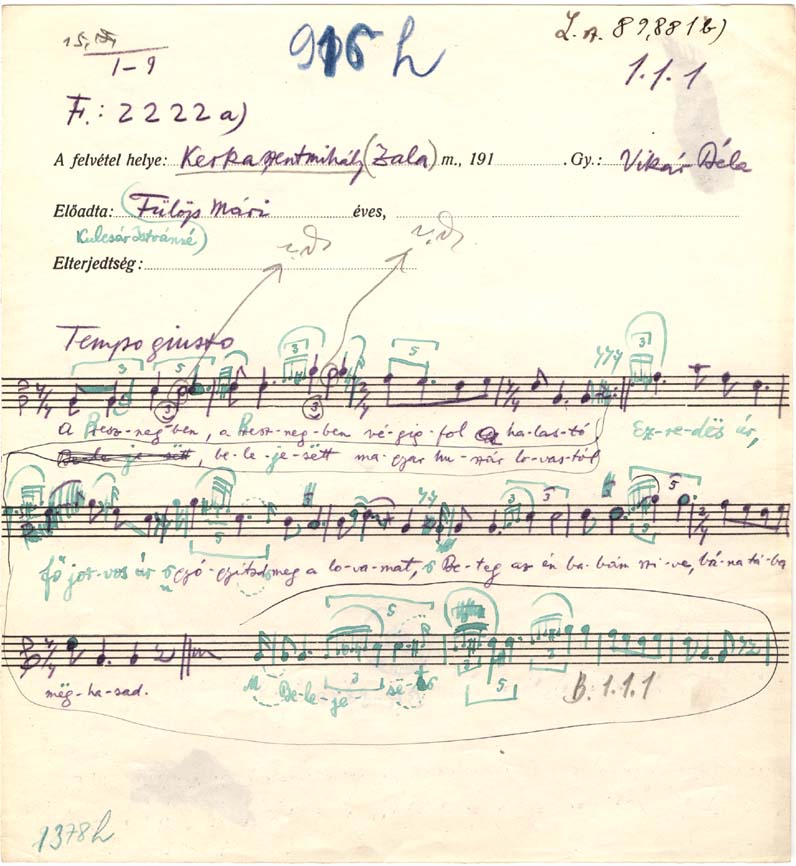 916 h
L. sz. 89,881 b)
1-9
1.1.1
F.: 2222 a)
A felvétel helye: Kerkaszentmihály (Zala) m., 191 Gy.: Vikár Béla
Előadta: Fülöp Mári éves,
Kulcsár Istvánné)
Elterjedtség:
Tempo giusto
3 5 3 5 3
3 3
A Presz-neg-ben, a Presz-neg-ben vé-gig-fol a ha-las-tó Ez-re-dës úr,
Be-le je-sëtt, be-le-je-sëtt ma-gyar hu-szár lo-vas-tól
5 3 3 5
fő jor-vos úr gyó-gyítsd meg a lo-va-mat, Be-teg az én ba-bám szi-ve, bá-na-tá-ba
5
mëg-ha-sad. Be-le-je-së-
3 5
B. 1.1.1
1378h